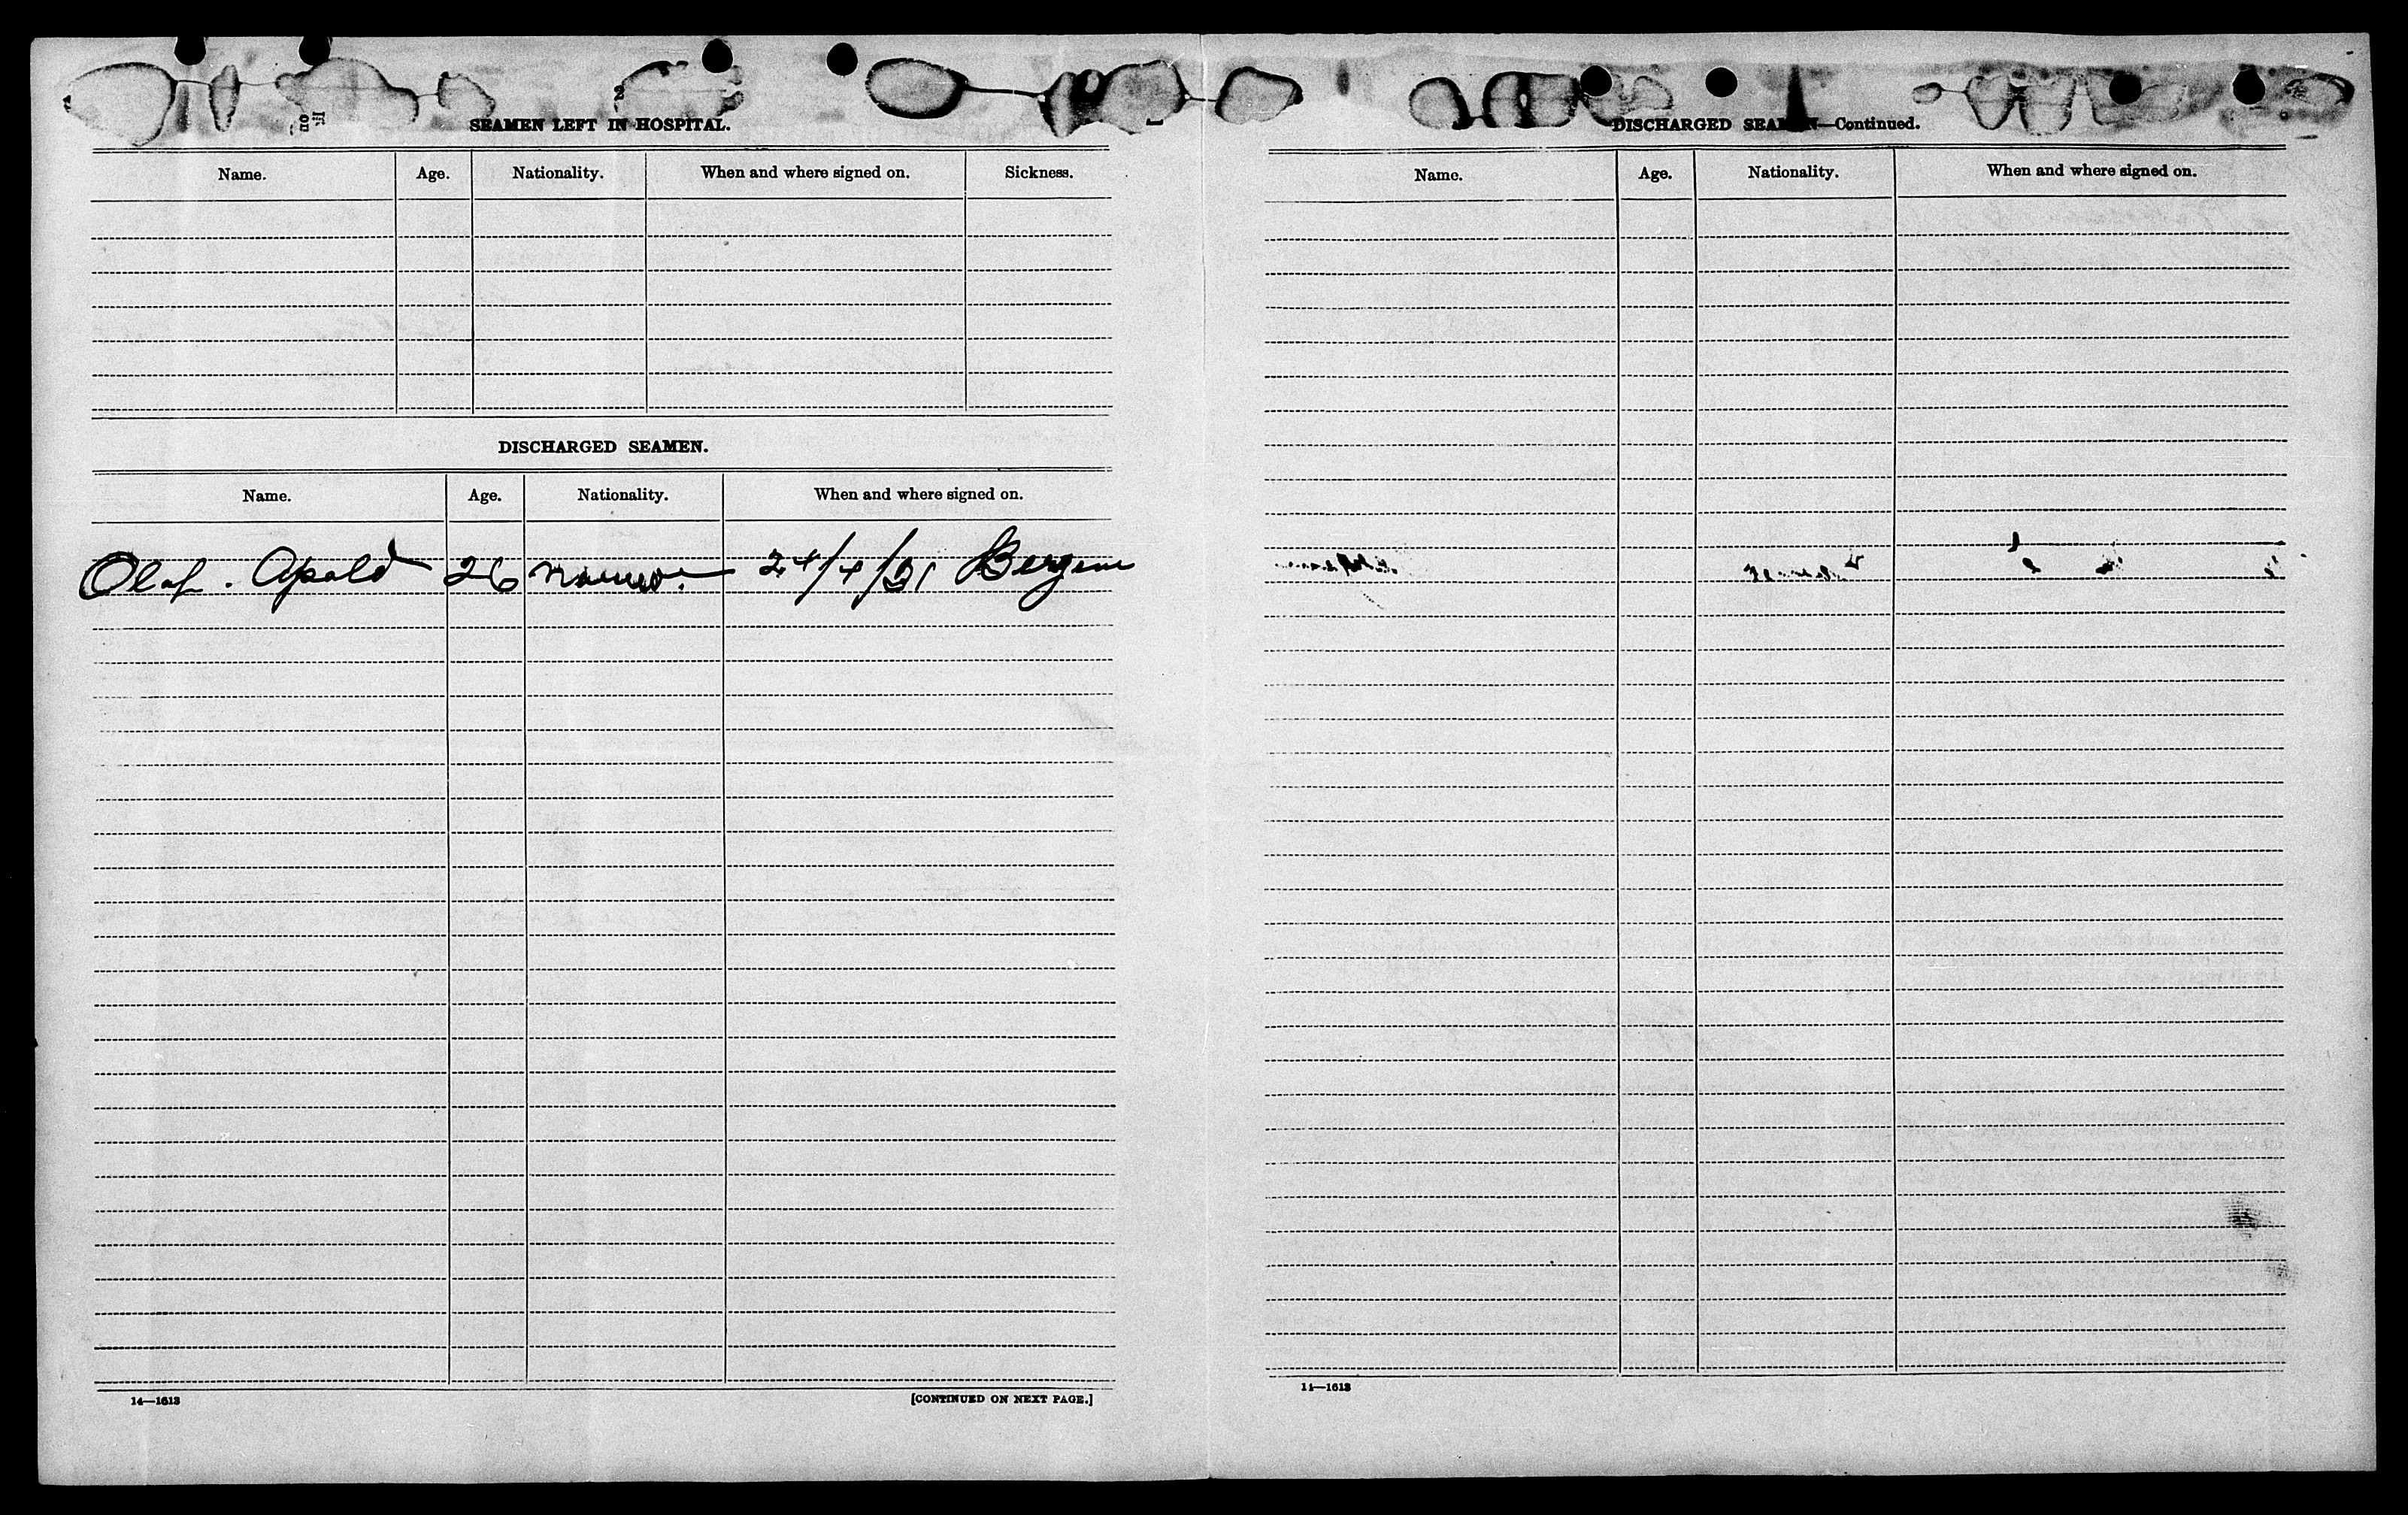 2
SEAMEN LEFT IN HOSPITAL.
Name. Age. Nationality. When and where signed on. Sickness.
DISCHARGED SEAMEN.
Name. Age. Nationality. When and where signed on.
Olaf. Apold 26 24/4/21 Bergen
14—1613
[CONTINUED ON NEXT PAGE.]
DISCHARGED SEAMEN—Continued.
Name. Age. Nationality. When and where signed on.
14—1613